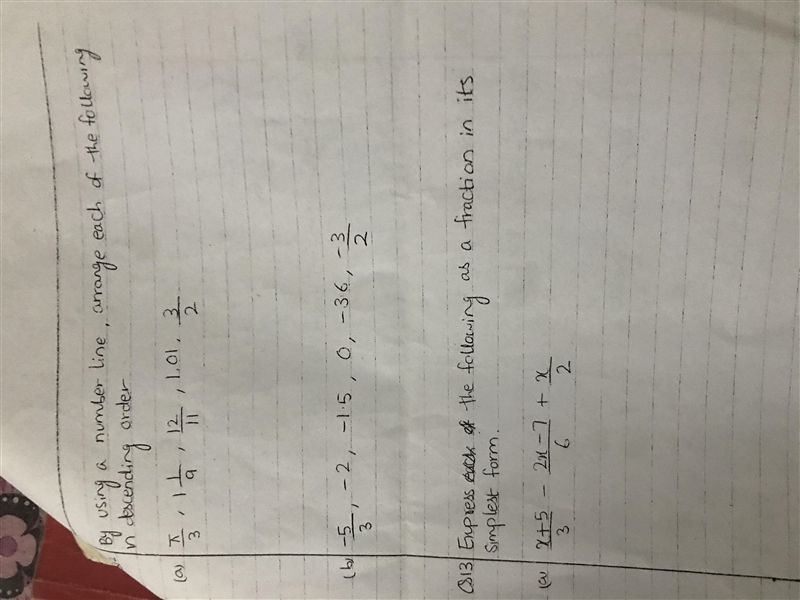 By using a number line, arrange each of the following
in descending order
(a) π/3 , 1 1/9 , 12/11 , 1.01 , 3/2
(b) -5/3 , -2 , -1.5 , 0 , -36 , -3/2
Q13 Express each of the following as a fraction in its
simplest form.
(a) x+5/3 - 2x-7/6 + x/2